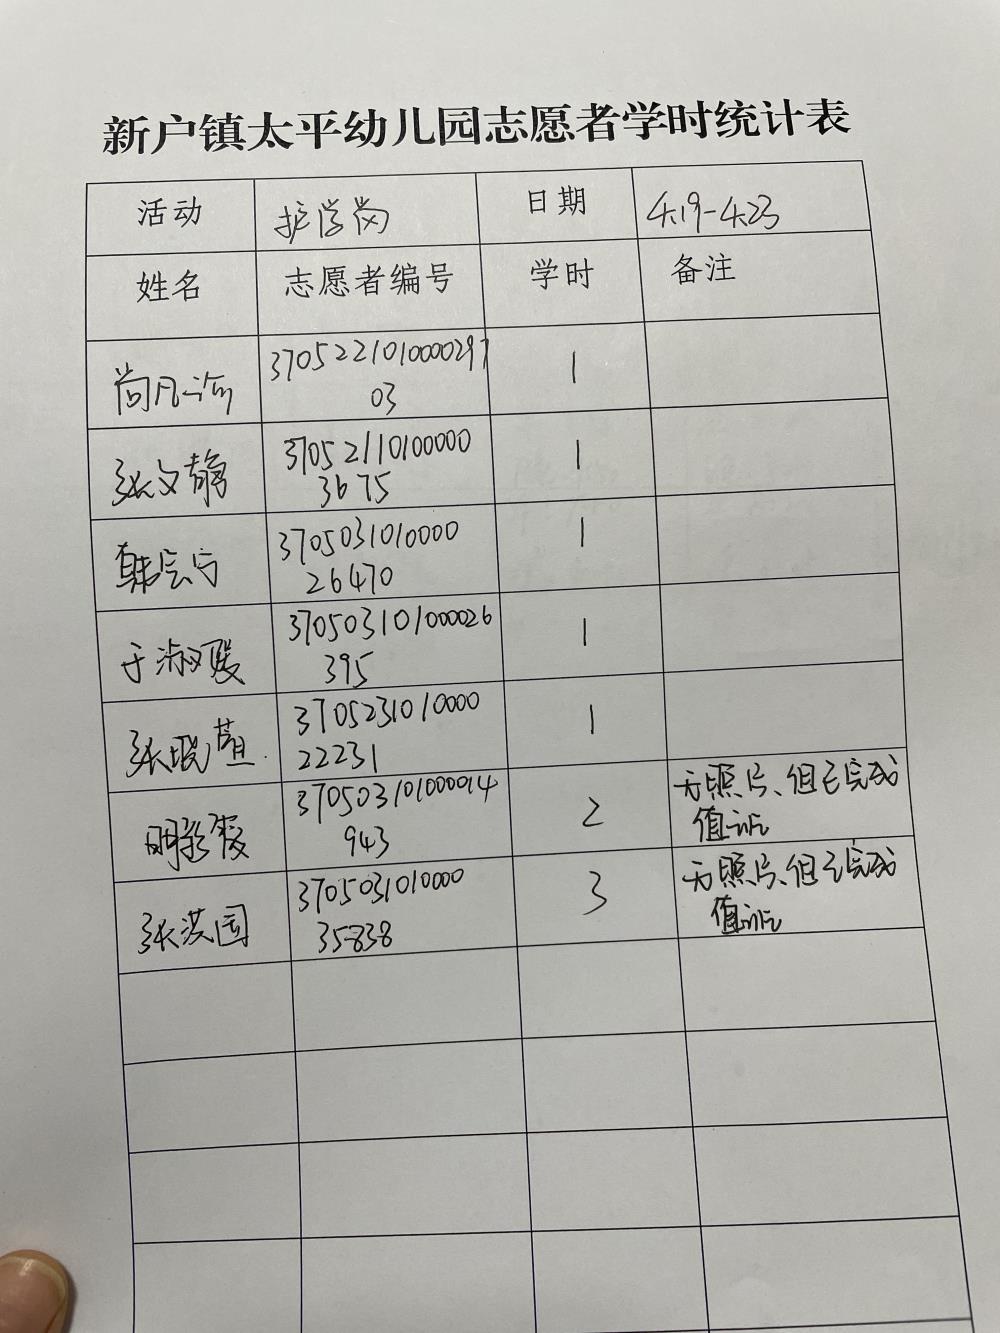 新户镇太平幼儿园志愿者学时统计表
活动 护学岗 日期 4.19-4.23
姓名 志愿者编号 学时 备注
尚凡 370522101000029703 1
张文静 370521101000003675 1
韩 370503101000026470 1
于淑媛 370503101000026395 1
张晓萱 370523101000022231 1
明 370503101000014943 2 无照片、但已完成
值
张洪国 370503101000035838 3 无照片、但已完成
值